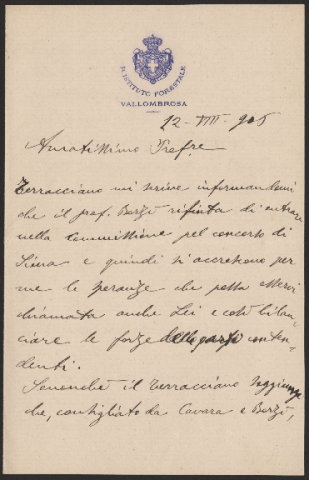 R. ISTITUTO FORESTALE
VALLOMBROSA
12-VIII-905
Amatissimo Prof.re
Terracciano mi scrive informandomi
che il prof. Borzì rifiuta di entrare
nella Commissione pel concorso di
Siena e quindi si accrescono per
me le speranze che possa esservi
chiamata anche Lei e così bilan-
ciare le forze delle parti conten-
denti.
Senonchè il Terracciano soggiunge
che, consigliato da Cavara e Borzì,